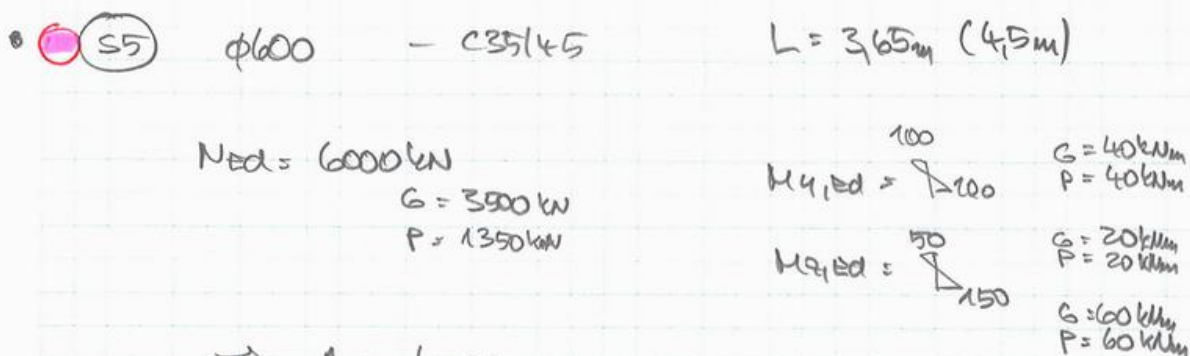 S5 φ600 - C35/45 L = 3,65m (4,5m)
NEd = 6000kN
G = 3500 kN
P = 1350kN
My,Ed = 100 100
G = 40kNm
P = 40kNm
Mz,Ed = 50 150
G = 20kNm
P = 20kNm
G = 60kNm
P = 60kNm